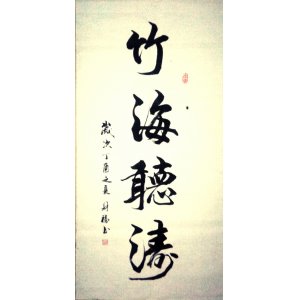 竹海聽濤
歲次丁酉之夏